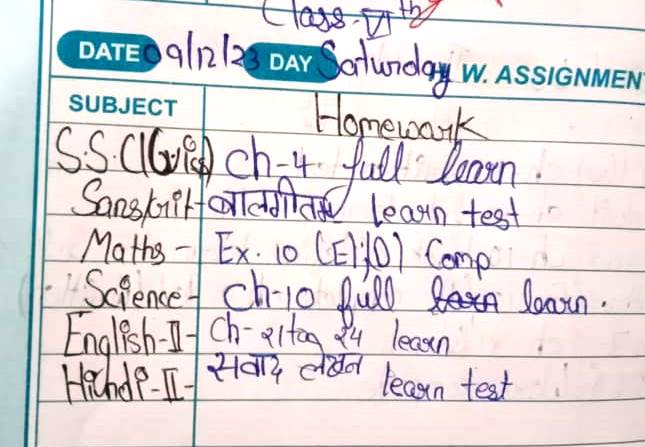 Class-VIth
DATE 09/12/23 DAY Saturday W. ASSIGNMEN
SUBJECT Homewark
S.S.C(Civics) Ch-4 full learn.
Sanskrit- बालगीतम learn test
Maths - Ex. 10 (E), (D) Comp
Science - Ch-10 full learn.
English-II- Ch- 21 to 24 learn
Hindi-II- सवाद लेखन learn test